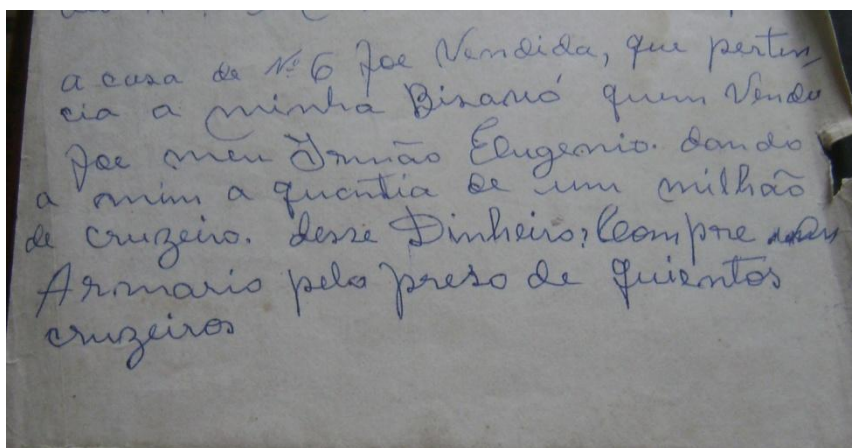 a casa de Nº 6 foe Vendida, que perten,
cia a minha Bisavó quem Vendo
foe meu Irmão Eugenio. dando
a mim a quantia de um milhão
de cruzeiro. desse Dinheiro, Compre um
Armario pelo preso de quientos
cruzeiros